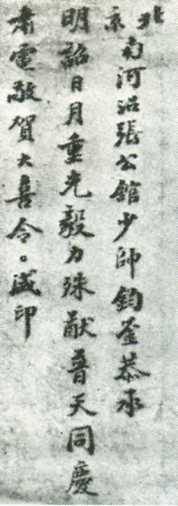 北京南河沿張公館少師鈞鉴恭承
明詔日月重光毅力殊猷普天同慶
肅電敬賀大喜令。盛印